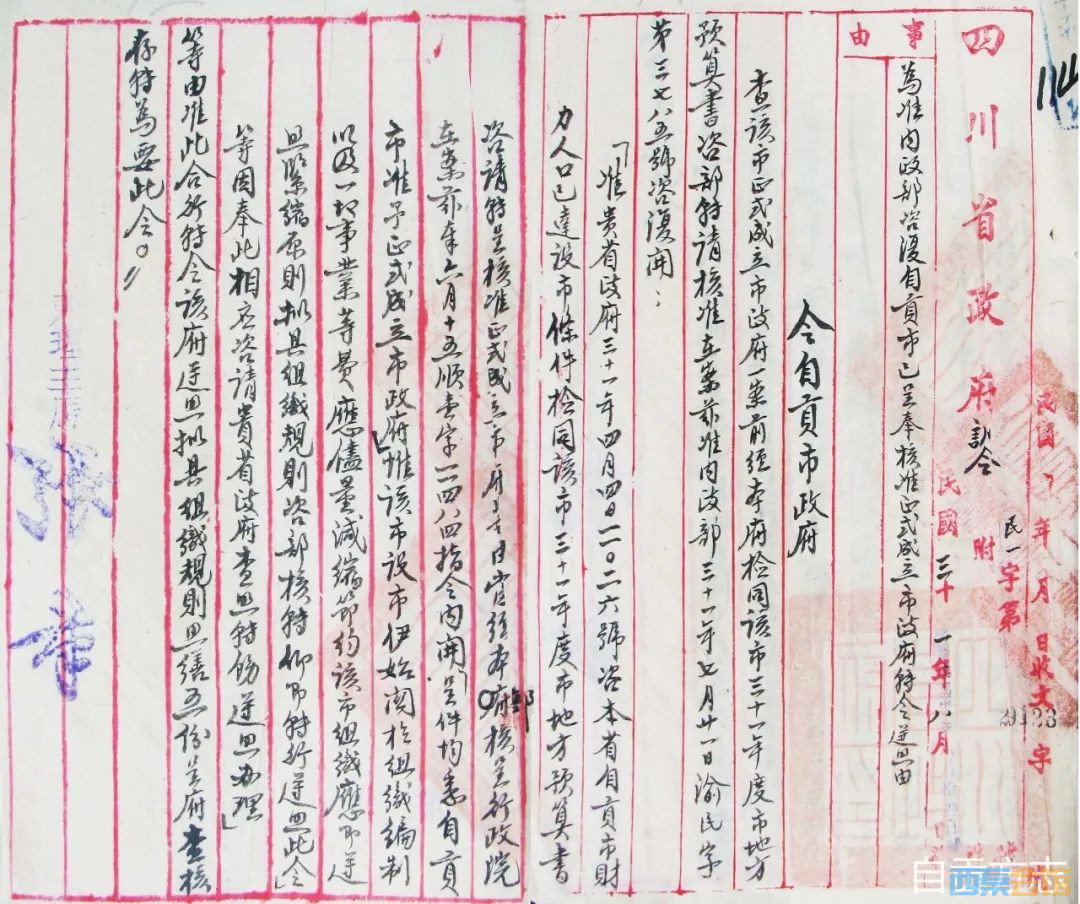 民國 年 月 日收文 字
民一字第
附
民國三十一年八月
四川省政府訓令
事由
為准内政部咨復自貢市已呈奉核准正式成立市政府轉令遵照由
令自貢市政府
查該市正式成立市政府一案前經本府檢同該市三十一年度市地方
預算書咨部轉請核准在案茲准内政部三十一年七月廿一日渝民字
第三七八五號咨復開：
「准貴省政府三十一年四月四日一一〇二六號咨本省自貢市財
力人口已達設市條件檢同該市三十一年度市地方預算書
咨請轉呈核准正式成立市府等由當經本部核呈行政院
在案茲奉六月十五順壹字一一四八四指令内開『呈件均悉自貢
市准予正式成立市政府惟該市設市伊始関於組織編制
以及一切事業等費應儘量減縮節約該市組織應即逆
照緊縮原則擬具組織規則咨部核轉仰即轉行遵照此令』
等因奉此相應咨請貴省政府查照轉飭遵照办理」
等由准此合行轉令該府遵照擬具組織規則照繕五份呈府查核
存轉為要此令。